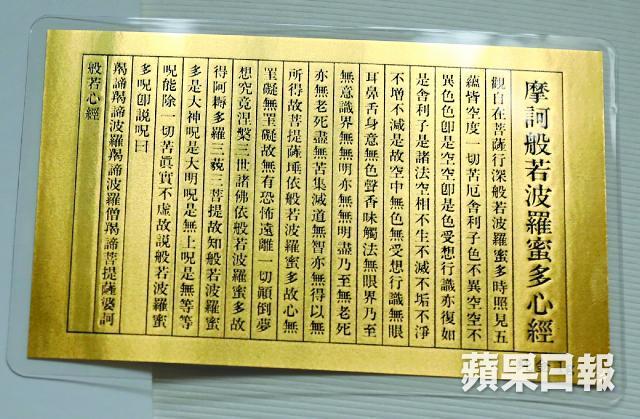 摩訶般若波羅蜜多心經
觀自在菩薩行深般若波羅蜜多時照見五
蘊皆空度一切苦厄舍利子色不異空空不
異色色卽是空空卽是色受想行識亦復如
是舍利子是諸法空相不生不滅不垢不淨
不增不減是故空中無色無受想行識無眼
耳鼻舌身意無色聲香味觸法無眼界乃至
無意識界無無明亦無無明盡乃至無老死
亦無老死盡無苦集滅道無智亦無得以無
所得故菩提薩埵依般若波羅蜜多故心無
罣礙無罣礙故無有恐怖遠離一切顚倒夢
想究竟涅槃三世諸佛依般若波羅蜜多故
得阿耨多羅三藐三菩提故知般若波羅蜜
多是大神呪是大明呪是無上呪是無等等
呪能除一切苦眞實不虛故說般若波羅蜜
多呪卽說呪曰
羯諦羯諦波羅羯諦波羅僧羯諦菩提薩婆訶
般若心經
蘋果日報